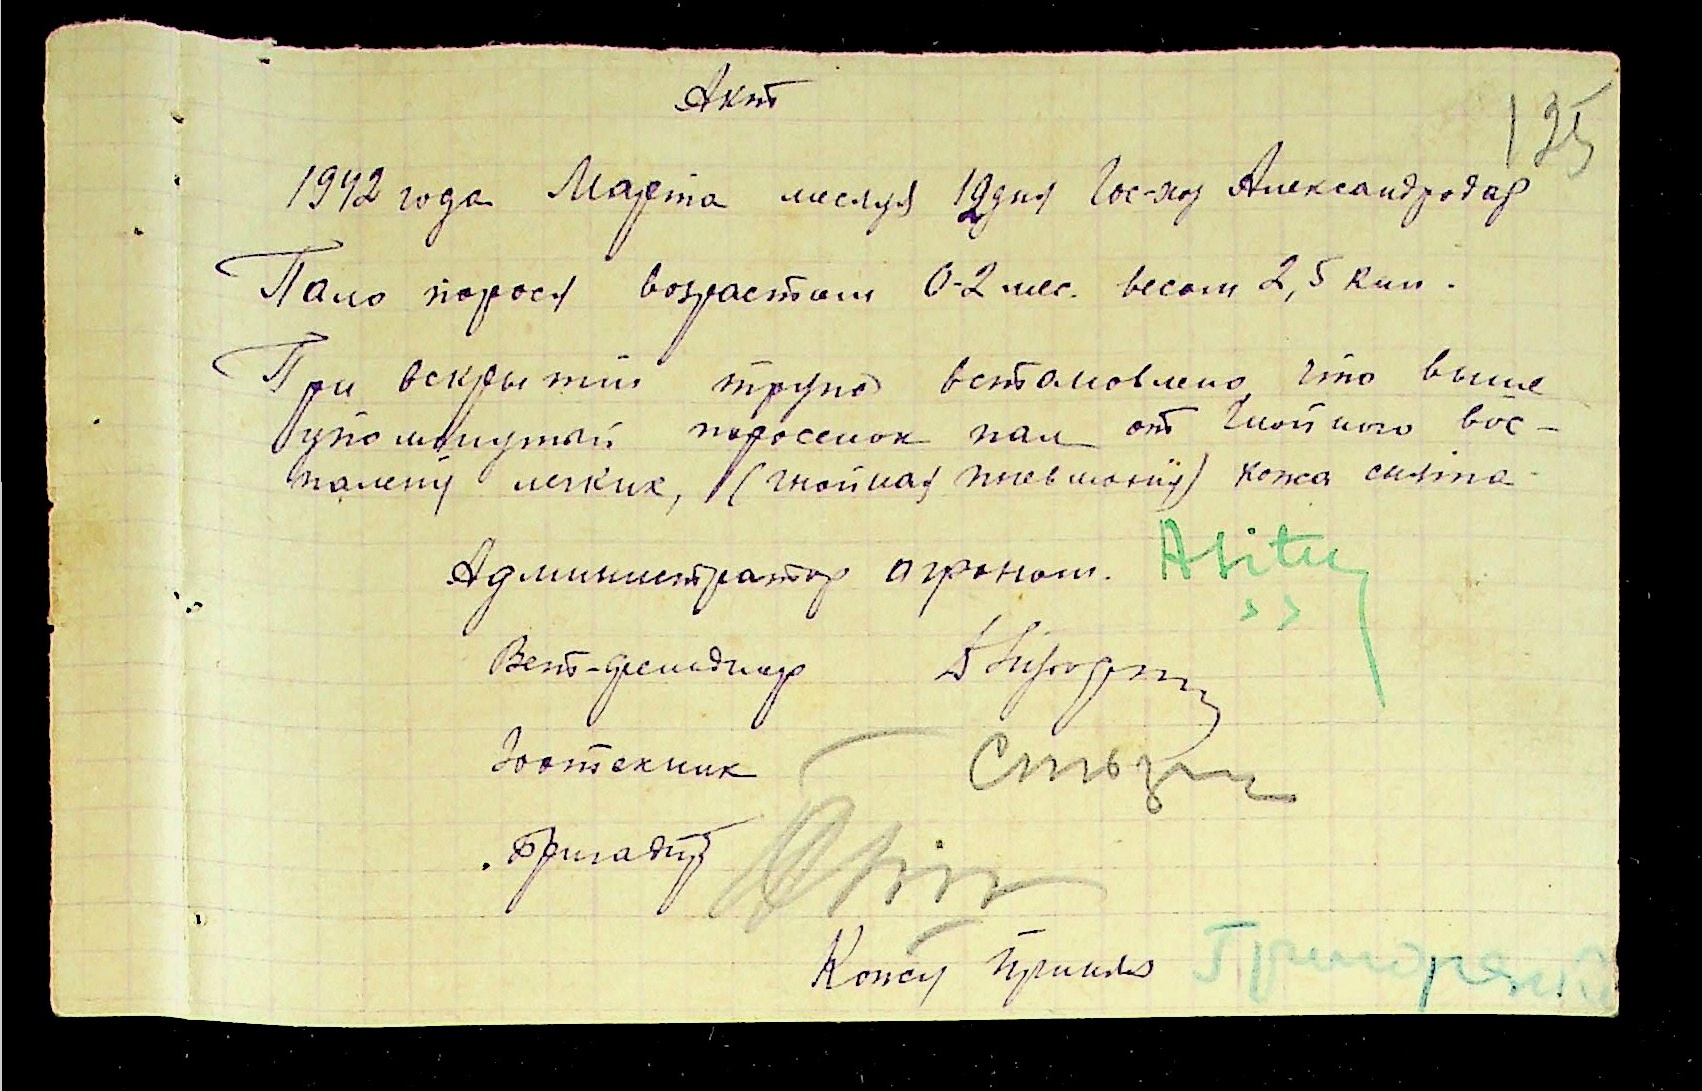 Акт
125
1942 года Марта месяця 12 дня Гос-хоз Александродар
Пало порося возрастом 0-2 мес. весом 2,5 клг.
При вскрытии трупа встановлено что выше
упомянутый поросенок пал от Гнойного вос-
паления легких, (гнойная пневмония) кожа снята
Администратор агроном.
Вет-фельдшер
Зоотехник
Бригадир
Кожу принял